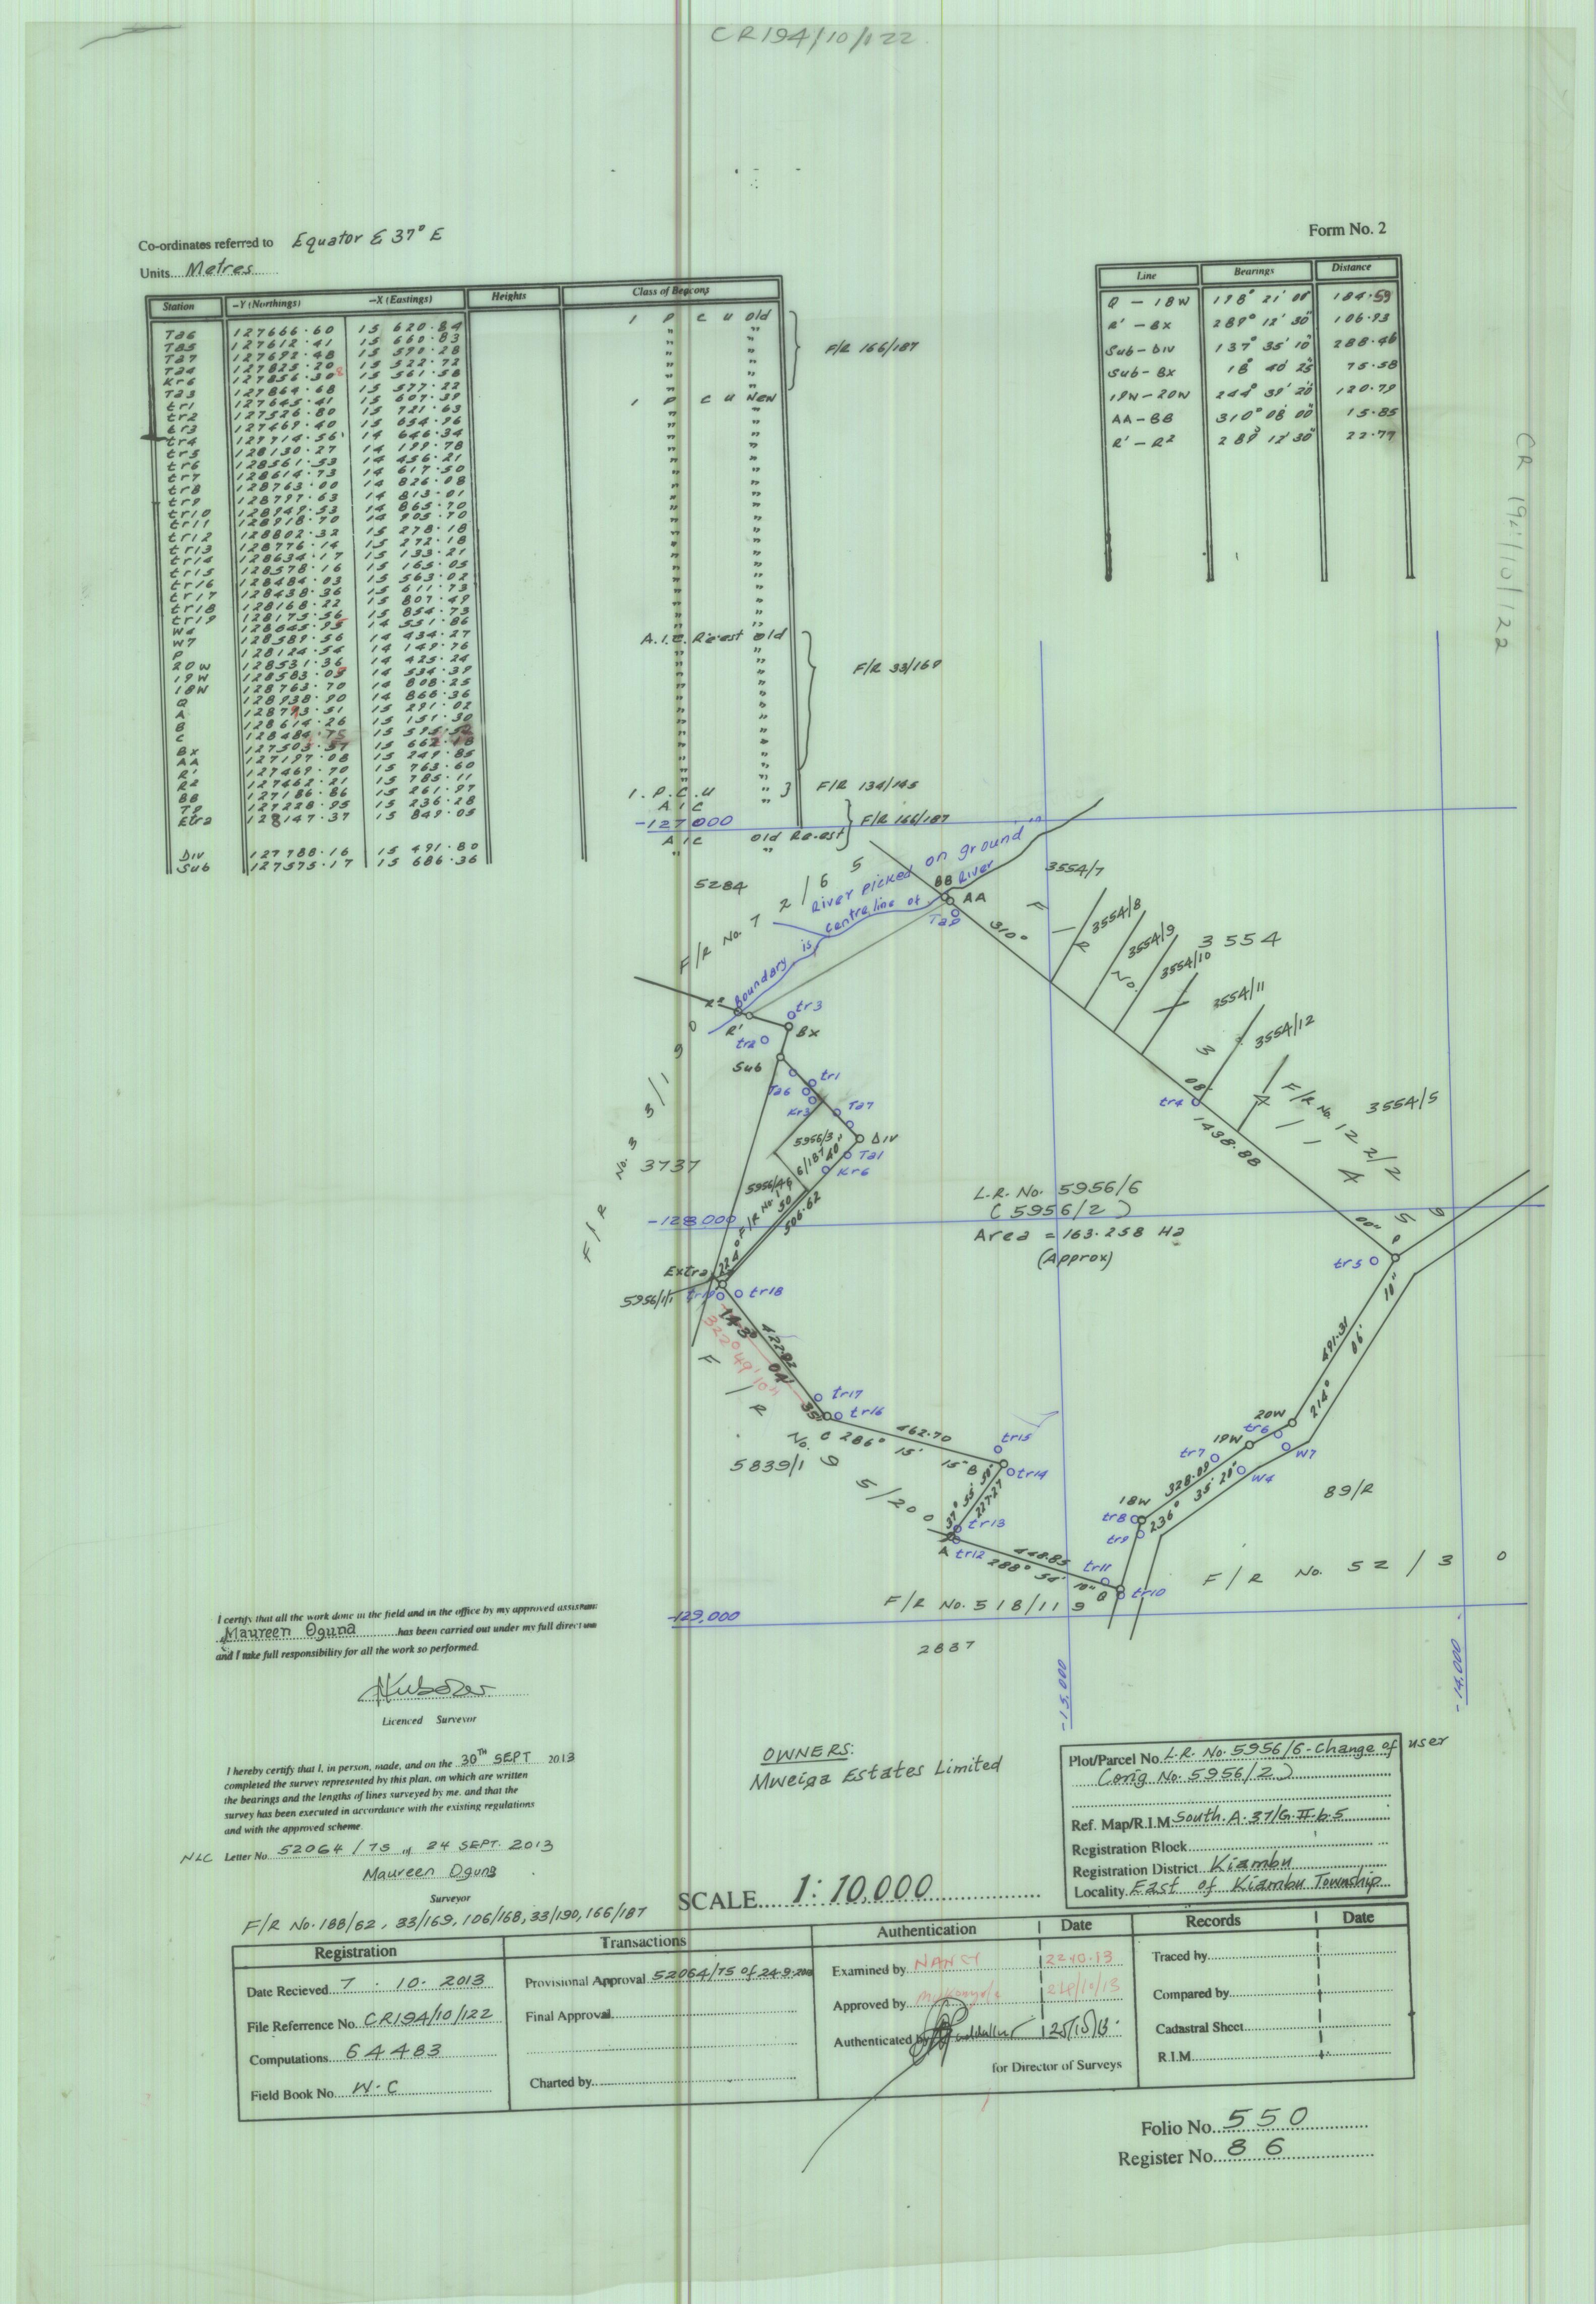 CR194/10/122
Co-ordinates referred to Equator & 37° E
Units Metres
Form No. 2
Station -Y (Northings) -X (Eastings) Heights Class of Beacons
Ta6 127666.60 15 620.84 I P C U Old
Ta5 127612.41 15 660.83 "
Ta7 127692.48 15 590.28 "
Ta4 127825.20 15 522.72 "
Kr6 127856.30 15 561.58 "
Ta3 127864.68 15 577.22 "
tr1 127645.41 15 607.39 I P C U New
tr2 127526.80 15 721.63 "
tr3 127469.40 15 654.96 "
tr4 127714.56 14 646.34 "
tr5 128130.27 14 199.78 "
tr6 128561.53 14 456.21 "
tr7 128614.73 14 617.50 "
tr8 128763.00 14 826.08 "
tr9 128797.63 14 813.01 "
tr10 128949.53 14 865.70 "
tr11 128918.70 14 905.70 "
tr12 128802.32 15 278.18 "
tr13 128776.14 15 272.18 "
tr14 128634.17 15 133.21 "
tr15 128578.16 15 165.05 "
tr16 128484.03 15 563.02 "
tr17 128438.36 15 611.73 "
tr18 128168.22 15 807.49 "
tr19 128175.56 15 854.73 "
W4 128645.95 14 551.86 A.I.C. Re-est Old
W7 128589.56 14 434.27 "
P 128124.54 14 149.76 "
20W 128531.36 14 425.24 "
19W 128583.09 14 534.39 "
18W 128763.70 14 808.25 "
Q 128938.90 14 866.36 "
A 128793.51 15 291.02 "
B 128614.26 15 151.30 "
C 128484.75 15 595.52 "
Bx 127503.57 15 662.18 "
AA 127197.08 15 249.85 "
R' 127469.70 15 763.60 "
R2 127462.21 15 785.11 "
BB 127186.86 15 261.97 I.P.C.U "
T9 127228.95 15 236.28 A I C "
Etra 128147.37 15 849.05
Div 127788.16 15 491.80 A I C Old Re-est
Sub 127575.17 15 686.36 " "
F/R 166/187
F/R 33/169
F/R 134/145
F/R 166/187
Line Bearings Distance
Q - 18W 198° 21' 00" 184.59
R' - Bx 289° 12' 30" 106.93
Sub - Div 137° 35' 10" 288.46
Sub - Bx 18° 40' 25" 75.58
19W - 20W 244° 39' 20" 120.79
AA - BB 310° 08' 00" 15.85
R' - R2 289° 12' 30" 22.77
CR 194/10/122
-127 000
5284
F/R No. 7 2 / 6 5
River picked on ground
Boundary is centre line of River
BB
AA
Ta9
310°
3554/7
3554/8
3554/9
3554/10
3 554
3554/11
3554/12
3554/5
F/R No. 122/2
R2
R'
tr3
Bx
tr2
Sub
tr1
Ta6
Kr3
Ta7
Div
Ta1
Kr6
5956/3
5956/46
F/R No. 3 3/1 9 0
3737
506.62
08'
tr4
1438.88
00"
P
tr5
-128 000
L.R. No. 5956/6
(5956/2)
Area = 163.258 Ha
(Approx)
Extra
5956/1/1
tr19
tr18
143°
04'
35"
422.92
322°49'10"
tr17
tr16
C
286° 15' 15"
462.70
B
tr15
tr14
37° 55' 50"
227.27
tr13
A
tr12
288° 54' 10"
448.85
tr11
Q
tr10
F/R No. 9 5/20 0
5839/1
491.31
214° 06' 10"
20W
tr6
19W
W7
tr7
W4
328.09
236° 35' 20"
18W
tr8
tr9
89/R
F/R No. 52 / 3 0
F/R No. 518/11 9
-129,000
2837
-15,000
-14,000
I certify that all the work done in the field and in the office by my approved assistant
Maureen Oguna has been carried out under my full direction
and I take full responsibility for all the work so performed.
Licenced Surveyor
I hereby certify that I, in person, made, and on the 30TH SEPT 2013
completed the survey represented by this plan, on which are written
the bearings and the lengths of lines surveyed by me, and that the
survey has been executed in accordance with the existing regulations
and with the approved scheme
NLC Letter No. 52064 / 75 of 24 SEPT. 2013
Maureen Oguna
Surveyor
F/R No. 188/62, 33/169, 106/168, 33/190, 166/187
OWNERS:
Mweiga Estates Limited
SCALE 1:10,000
Plot/Parcel No. L.R. No. 5956/6-Change of user
(orig No. 5956/2)
Ref. Map/R.I.M South.A.37/G.II.b.5
Registration Block
Registration District Kiambu
Locality East of Kiambu Township
Registration
Date Recieved 7 . 10. 2013
File Referrence No. CR194/10/122
Computations 64483
Field Book No. W.C
Transactions
Provisional Approval 52064/75 of 24.9.2013
Final Approval
Charted by
Authentication Date
Examined by NANCY 22.10.13
Approved by 24/10/13
Authenticated by 25/10/13
for Director of Surveys
Records Date
Traced by
Compared by
Cadastral Sheet
R.I.M
Folio No. 550
Register No. 86